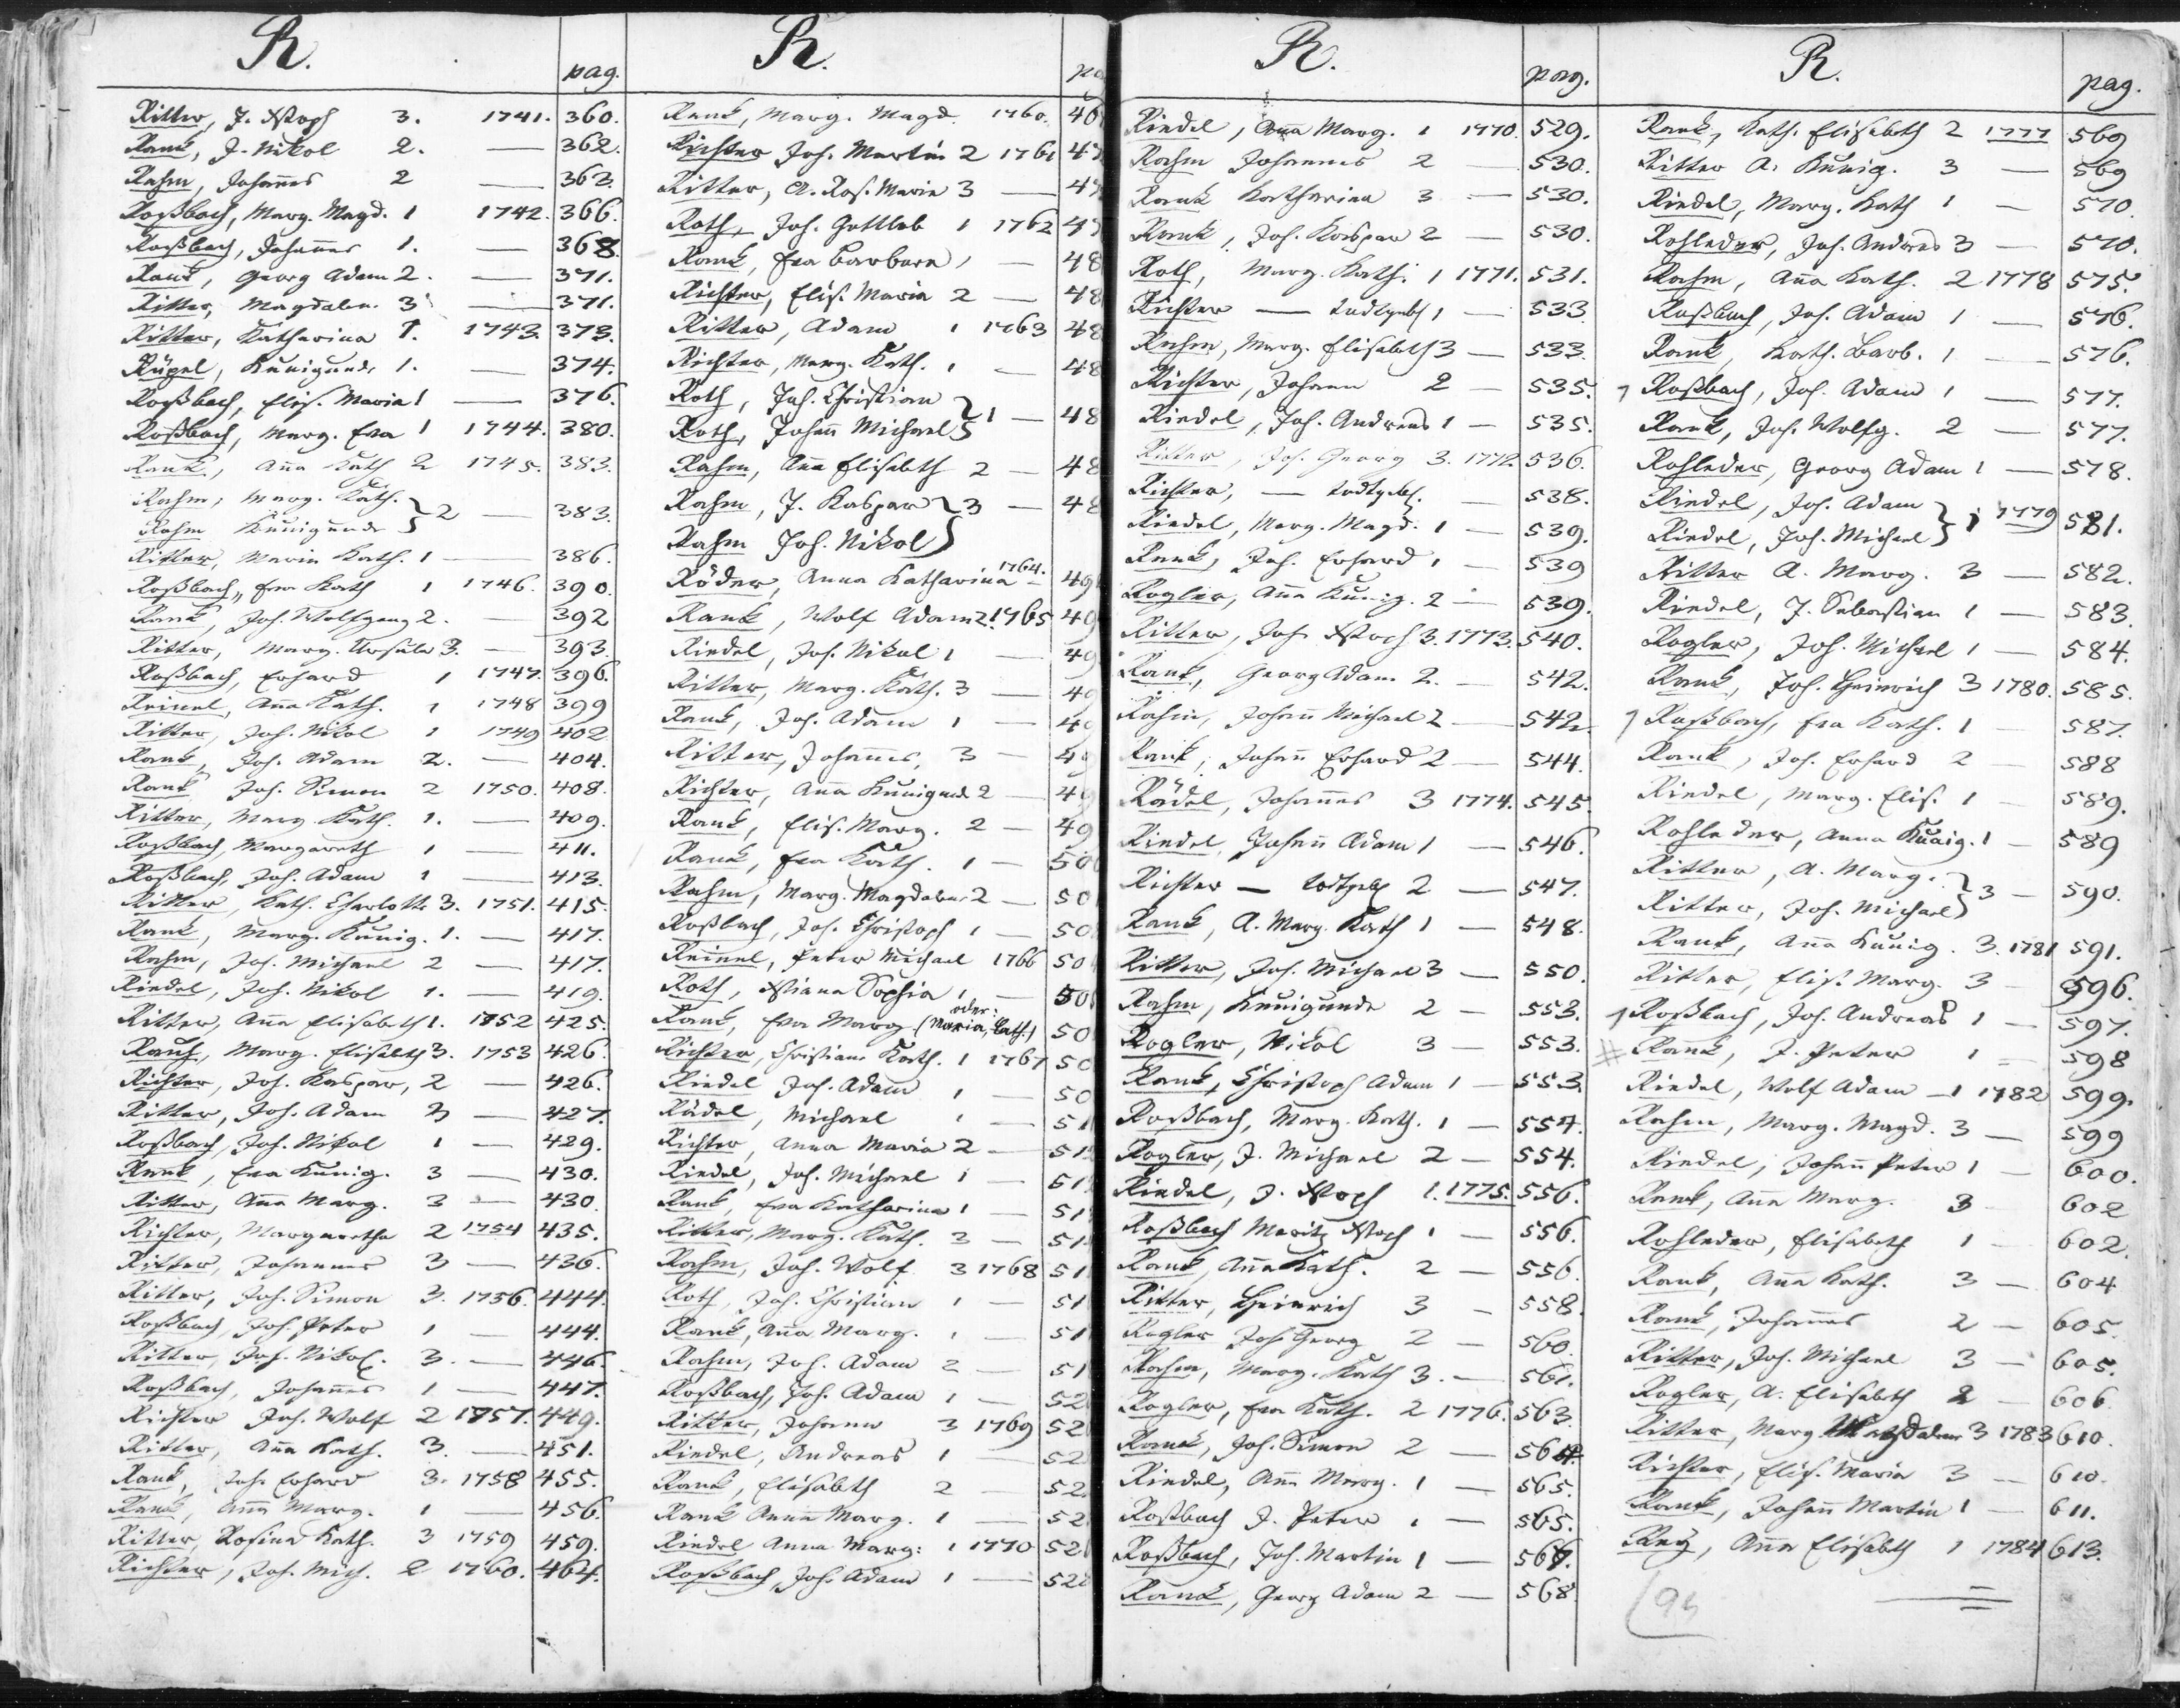 R.
pag.
Ritter, J. Xstoph 3. 1741. 360.
Rank, J. Nikol 2. — 362.
Rahm, Johañes 2 — 363.
Roßbach, Marg. Magd. 1 1742. 366.
Roßbach, Johañes 1. — 368.
Rank, Georg Adam 2. — 371.
Ritter, Magdalen. 3 — 371.
Ritter, Katharina 1. 1743. 373.
Rügel, Kunigunde 1. — 374.
Roßbach, Elis. Maria 1 — 376.
Roßbach, Marg. Eva 1 1744. 380.
Rank, Aña Kath 2 1745. 383.
Rahm, Marg. Kath. } 2 — 383.
Rahm Kunigunde
Ritter, Maria Kath. 1 — 386.
Roßbach, Eva Kath 1 1746. 390.
Rank, Joh. Wolfgang 2. — 392
Ritter, Marg. Ursula 3. — 393.
Roßbach, Erhard 1 1747. 396.
Reinel, Aña Kath. 1 1748 399
Ritter, Joh. Nikol 1 1749 402
Rank, Joh. Adam 2. — 404.
Rank Joh. Simon 2 1750. 408.
Ritter, Marg. Kath. 1. — 409.
Roßbach, Margareth 1 — 411.
Roßbach, Joh. Adam 1 — 413.
Ritter, Kath. Charlotte 3. 1751. 415.
Rank, Marg. Kunig. 1. — 417.
Rahm, Joh. Michael 2 — 417.
Riedel, Joh. Nikol 1. — 419.
Ritter, Aña Elisabeth 1. 1752 425.
Rauh, Marg. Elisabth 3. 1753 426.
Richter, Joh. Kaspar, 2 — 426.
Ritter, Joh. Adam 3 — 427.
Roßbach, Joh. Nikol 1 — 429.
Rank, Eva Kunig. 3 — 430.
Ritter, Aña Marg. 3 — 430.
Richter, Margaretha 2 1754 435.
Ritter, Johannes 3 — 436.
Ritter, Joh. Simon 3. 1756. 444.
Roßbach, Joh. Peter 1 — 444.
Ritter, Joh. Nikol. 3. — 446.
Roßbach, Johañes 1 — 447.
Richter Joh. Wolf 2 1757. 449.
Ritter, Aña Kath. 3. — 451.
Rank, Joh. Erhard 3. 1758 455.
Rank, Aña Marg. 1 — 456.
Ritter, Rosina Kath. 3 1759 459.
Richter, Joh. Mich. 2 1760. 464.
R.
Rank, Marg. Magd. 1760. 46
Richter Joh. Martin 2 1761 47
Ritter, A. Ros. Maria 3 — 47
Roth, Joh. Gottlob 1 1762 47
Rank, Eva Barbara 1 — 48
Richter, Elis. Maria 2 — 48
Ritter, Adam 1 1763 48
Richter, Marg. Kath. 1 — 48
Roth, Joh. Christian } 1 — 48
Roth, Johañ Michael
Rahm, Aña Elisabeth 2 — 48
Rahm, J. Kaspar } 3 — 48
Rahm Joh. Nikol
Röder, Anna Katharina 1764. 49
Rank, Wolf Adam 2. 1765 49
Riedel, Joh. Nikol 1 — 49
Ritter, Marg. Kath. 3 — 49
Rank, Joh. Adam 1 — 49
Ritter, Johannes, 3 — 49
Richter, Aña Kunigund 2 — 49
Rank, Elis. Marg. 2 — 49
Rank, Eva Kath. 1 — 50
Rahm, Marg. Magdalen 2 — 50
Roßbach, Joh. Christoph 1 — 50
Reinel, Peter Michael 1766 50
Roth, Xstiana Sophia 1 — 50
Rank, Eva Marg (oder: Maria, Cath.) 50
Richter, Christiane Kath. 1 1767 50
Riedel Joh. Adam 1 — 50
Rädel, Michael 1 — 51
Richter, Anna Maria 2 — 51
Riedel, Joh. Michael 1 — 51
Rank, Eva Katharina 1 — 51
Ritter, Marg. Kath. 3 — 51
Rahm, Joh. Wolf 3 1768 51
Roth, Joh. Christian 1 — 51
Rank, Aña Marg. 1 — 51
Rahm, Joh. Adam 2 — 51
Roßbach, Joh. Adam 1 — 52
Ritter, Johann 3 1769 52
Riedel, Andreas 1 — 52
Rank, Elisabeth 2 — 52
Rank Anna Marg. 1 — 52
Riedel Anna Marg: 1 1770 52
Roßbach, Joh. Adam 1 — 52
R.
pag.
Riedel, Aña Marg. 1 1770. 529.
Rahm Johannes 2 — 530.
Rank Katharina 3 — 530.
Rank, Joh. Kaspar 2 — 530.
Roth, Marg. Kath. 1 1771. 531.
Richter — todtgeb 1 — 533
Rahm, Marg. Elisabeth 3 — 533.
Richter, Johann 2 — 535.
Riedel, Joh. Andreas 1 — 535.
Ritter, Joh. Georg 3. 1772. 536.
Richter, — todtgeb. — 538.
Riedel, Marg. Magd. 1 — 539.
Rank, Joh. Erhard 1 — 539
Rogler, Aña Kunig. 2 — 539.
Ritter, Joh. Xstoph 3. 1773. 540.
Rank, Georg Adam 2. — 542.
Rahm, Johañ Michael 2 — 542.
Rank, Johañ Erhard 2 — 544.
Rädel, Johañes 3 1774. 545.
Riedel, Johañ Adam 1 — 546.
Richter — todtgeb 2 — 547.
Rank, A. Marg. Kath 1 — 548.
Ritter, Joh. Michael 3 — 550.
Rahm, Kunigunde 2 — 553.
Rogler, Nikol 3 — 553.
Rank, Christoph Adam 1 — 553.
Roßbach, Marg. Kath. 1 — 554.
Rogler, J. Michael 2 — 554.
Riedel, J. Xstoph 1. 1775. 556.
Roßbach Moritz Xstoph 1 — 556.
Rank, Aña Kath. 2 — 556.
Ritter, Heinrich 3 — 558.
Rogler Joh Georg 2 — 560.
Rahm, Marg. Kath 3. — 561.
Rogler, Eva Kath. 2 1776. 563.
Rank, Joh. Simon 2 — 564
Riedel, Aña Marg. 1 — 565.
Roßbach J. Peter 1 — 565.
Roßbach, Joh. Martin 1 — 567.
Rank, Georg Adam 2 — 568
R.
pag.
Rank, Kath. Elisabeth 2 1777 569
Ritter A. Kunig. 3 — 569
Riedel, Marg. Kath 1 — 570.
Rohleder, Joh. Andreas 3 — 570.
Rahm, Aña Kath. 2 1778 575.
Roßbach, Joh. Adam 1 — 576.
Rank, Kath. Barb. 1 — 576.
Roßbach, Joh. Adam 1 — 577.
Rank, Joh. Wolfg. 2 — 577.
Rohleder, Georg Adam 1 — 578.
Riedel, Joh. Adam } 1 1779 581.
Riedel, Joh. Michael
Ritter A. Marg. 3 — 582.
Riedel, J. Sebastian 1 — 583.
Rogler, Joh. Michael 1 — 584.
Rank, Joh. Heinrich 3 1780. 585.
Roßbach, Eva Kath. 1 — 587.
Rank, Joh. Erhard 2 — 588
Riedel, Marg. Elis. 1 — 589.
Rohleder, Anna Kunig. 1 — 589
Ritter, A. Marg. } 3 — 590.
Ritter, Joh. Michael
Rank, Aña Kunig. 3. 1781 591.
Ritter, Elis. Marg. 3 — 596.
Roßbach, Joh. Andreas 1 — 597.
# Rank, J. Peter 1 — 598
Riedel, Wolf Adam — 1 1782 599.
Rahm, Marg. Magd. 3 — 599
Riedel, Johañ Peter 1 — 600.
Rank, Aña Marg. 3 602
Rohleder, Elisabeth 1 — 602.
Rank, Aña Kath. 3 — 604
Rank, Johañes 2 — 605.
Ritter, Joh. Michael 3 — 605.
Rogler, A. Elisabeth 2 — 606.
Ritter, Marg. Magdalena 3 1783 610.
Richter, Elis. Maria 3 — 610.
Rank, Johañ Martin 1 — 611.
Aña Elisabeth 1 1784 613.